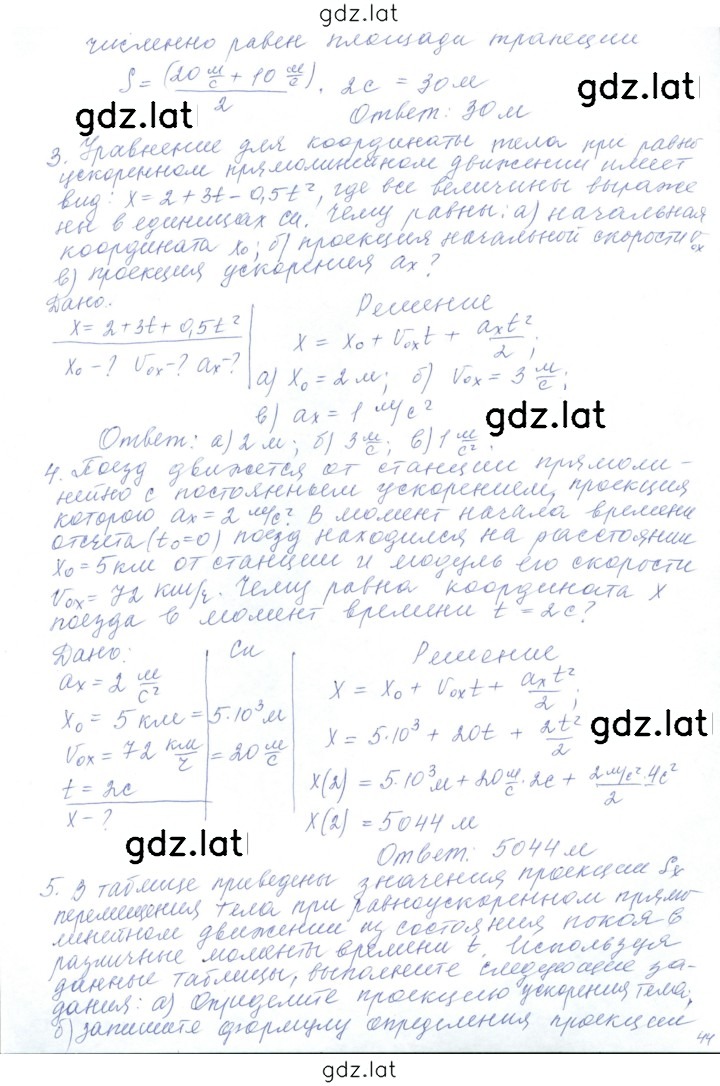 gdz.lat
численно равен площади трапеции
S = (20 м/с + 10 м/с)/2 · 2с = 30 м
gdz.lat
gdz.lat
Ответ: 30 м
3. Уравнение для координаты тела при равно
ускоренном прямолинейном движении имеет
вид: x = 2 + 3t - 0,5t², где все величины выраже
ны в единицах си. Чему равны: а) начальная
координата x₀; б) проекция начальной скорости υ₀ₓ
в) проекция ускорения aₓ?
Дано:
Решение
x = 2 + 3t + 0,5t²
x = x₀ + υ₀ₓt + aₓt²/2;
x₀ - ? υ₀ₓ - ? aₓ - ?
а) x₀ = 2 м; б) υ₀ₓ = 3 м/с;
в) aₓ = 1 м/с²
gdz.lat
Ответ: а) 2 м; б) 3 м/с; в) 1 м/с².
4. Поезд движется от станции прямоли-
нейно с постоянным ускорением, проекция
которого aₓ = 2 м/с². В момент начала времени
отсчета (t₀=0) поезд находился на расстоянии
x₀ = 5 км от станции и модуль его скорости
υ₀ₓ = 72 км/ч. Чему равна координата x
поезда в момент времени t = 2с?
Дано:
Си
Решение
aₓ = 2 м/с²
x = x₀ + υ₀ₓt + aₓt²/2;
x₀ = 5 км = 5·10³ м
x = 5·10³ + 20t + 2t²/2
gdz.lat
υ₀ₓ = 72 км/ч = 20 м/с
x(2) = 5·10³ м + 20 м/с · 2с + 2 м/с² · 4с²/2
t = 2с
x - ?
x(2) = 5044 м
gdz.lat
Ответ: 5044 м
5. В таблице приведены значения проекции Sₓ
перемещения тела при равноускоренном прямо
линейном движении из состояния покоя в
различные моменты времени t. Используя
данные таблицы, выполните следующие за-
дания: а) Определите проекцию ускорения тела;
б) запишите формулу определения проекции
44
gdz.lat